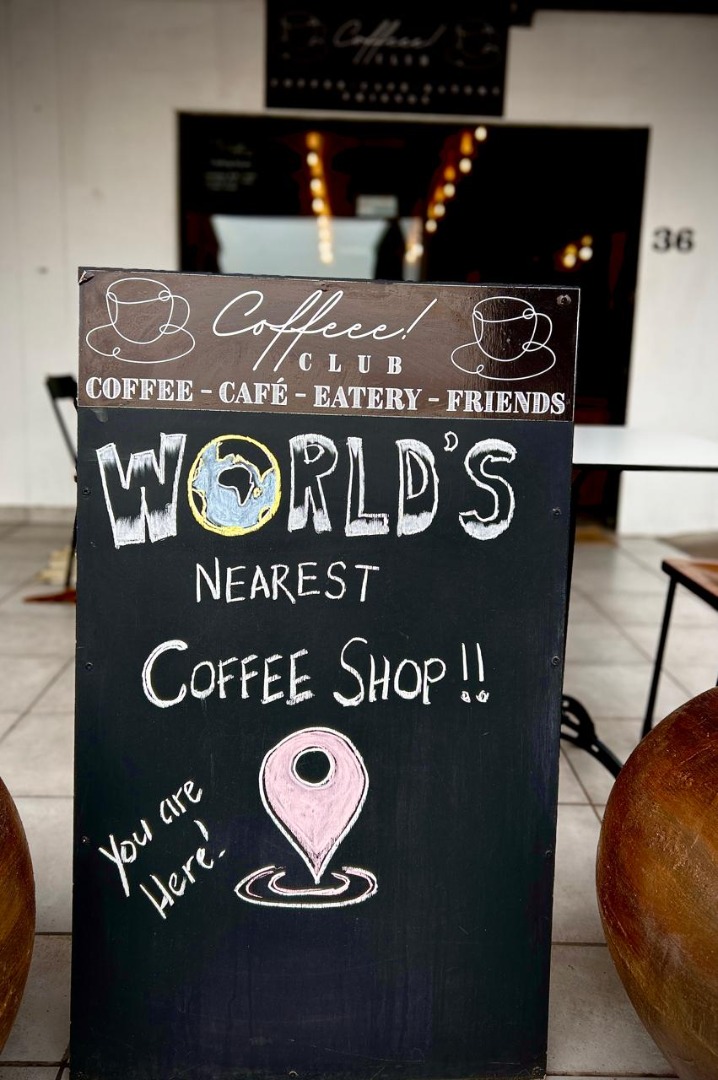 Coffeee!
CLUB
36
Coffeee!
CLUB
COFFEE - CAFÉ - EATERY - FRIENDS
WORLD'S
NEAREST
COFFEE SHOP!!
You are
Here!